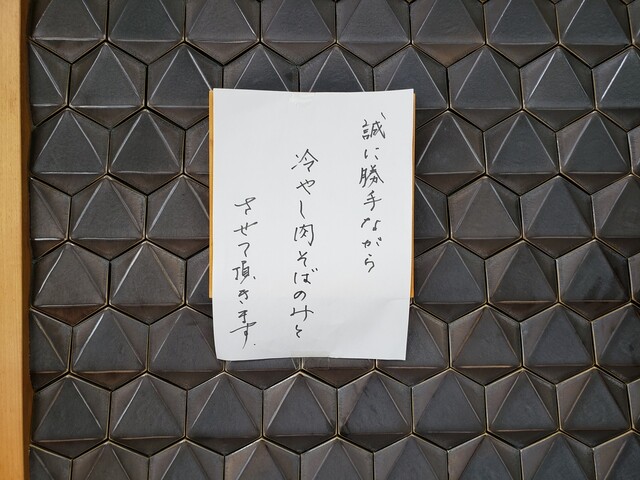 誠に勝手ながら
冷やし肉そばのみと
させて頂きます.